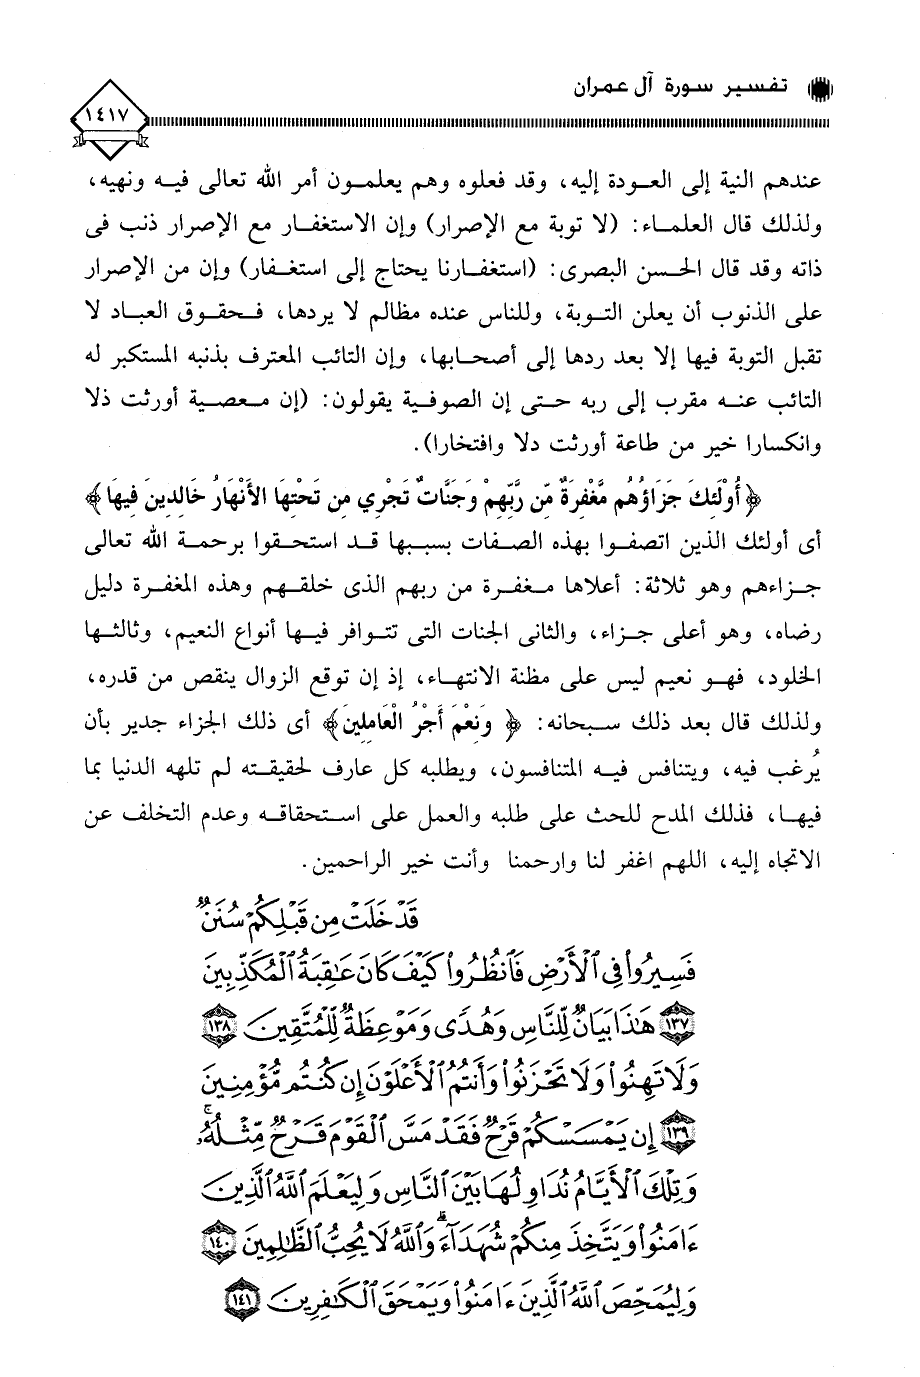 تفسير سورة آل عمران
١٤١٧
عندهم النية إلى العودة إليه، وقد فعلوه وهم يعلمون أمر الله تعالى فيه ونهيه،
ولذلك قال العلماء: (لا توبة مع الإصرار) وإن الاستغفار مع الإصرار ذنب فى
ذاته وقد قال الحسن البصرى: (استغفارنا يحتاج إلى استغفار) وإن من الإصرار
على الذنوب أن يعلن التوبة، وللناس عنده مظالم لا يردها، فحقوق العباد لا
تقبل التوبة فيها إلا بعد ردها إلى أصحابها، وإن التائب المعترف بذنبه المستكبر له
التائب عنه مقرب إلى ربه حتى إن الصوفية يقولون: (إن معصية أورثت ذلا
وانكسارا خير من طاعة أورثت دلا وافتخارا).
﴿أُوْلَئِكَ جَزَاؤُهُم مَّغْفِرَةٌ مِّن رَّبِّهِمْ وَجَنَّاتٌ تَجْرِي مِن تَحْتِهَا الأَنْهَارُ خَالِدِينَ فِيهَا﴾
أى أولئك الذين اتصفوا بهذه الصفات بسببها قد استحقوا برحمة الله تعالى
جزاءهم وهو ثلاثة: أعلاها مغفرة من ربهم الذى خلقهم وهذه المغفرة دليل
رضاه، وهو أعلى جزاء، والثانى الجنات التى تتوافر فيها أنواع النعيم، وثالثها
الخلود، فهو نعيم ليس على مظنة الانتهاء، إذ إن توقع الزوال ينقص من قدره،
ولذلك قال بعد ذلك سبحانه: ﴿وَنِعْمَ أَجْرُ الْعَامِلِينَ﴾ أى ذلك الجزاء جدير بأن
يُرغب فيه، ويتنافس فيه المتنافسون، ويطلبه كل عارف لحقيقته لم تلهه الدنيا بما
فيها، فذلك المدح للحث على طلبه والعمل على استحقاقه وعدم التخلف عن
الاتجاه إليه، اللهم اغفر لنا وارحمنا وأنت خير الراحمين.
قَدْ خَلَتْ مِن قَبْلِكُمْ سُنَنٌ
فَسِيرُوا۟ فِى ٱلْأَرْضِ فَٱنظُرُوا۟ كَيْفَ كَانَ عَـٰقِبَةُ ٱلْمُكَذِّبِينَ
١٣٧ هَـٰذَا بَيَانٌ لِّلنَّاسِ وَهُدًى وَمَوْعِظَةٌ لِّلْمُتَّقِينَ ١٣٨
وَلَا تَهِنُوا۟ وَلَا تَحْزَنُوا۟ وَأَنتُمُ ٱلْأَعْلَوْنَ إِن كُنتُم مُّؤْمِنِينَ
١٣٩ إِن يَمْسَسْكُمْ قَرْحٌ فَقَدْ مَسَّ ٱلْقَوْمَ قَرْحٌ مِّثْلُهُۥ ۚ
وَتِلْكَ ٱلْأَيَّامُ نُدَاوِلُهَا بَيْنَ ٱلنَّاسِ وَلِيَعْلَمَ ٱللَّهُ ٱلَّذِينَ
ءَامَنُوا۟ وَيَتَّخِذَ مِنكُمْ شُهَدَآءَ ۗ وَٱللَّهُ لَا يُحِبُّ ٱلظَّـٰلِمِينَ ١٤٠
وَلِيُمَحِّصَ ٱللَّهُ ٱلَّذِينَ ءَامَنُوا۟ وَيَمْحَقَ ٱلْكَـٰفِرِينَ ١٤١